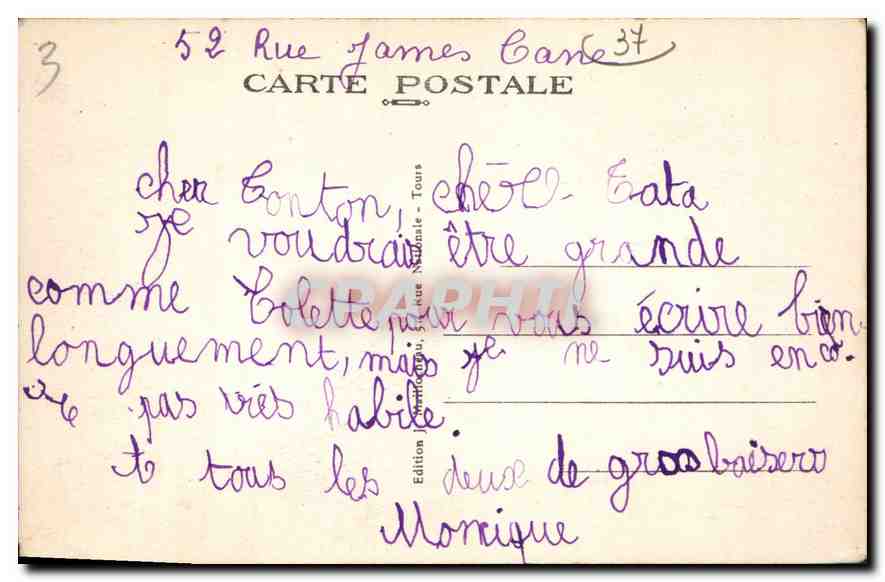 3
52 Rue James Cane 37
CARTE POSTALE
cher Tonton, chère Tata
je voudrais être grande
comme Colette pour vous écrire bien
longuement, mais je ne suis enco-
re pas très habile.
A tous les deux de gros baisers
Monique
Edition J. Nationale - Tours
CPAPHIL